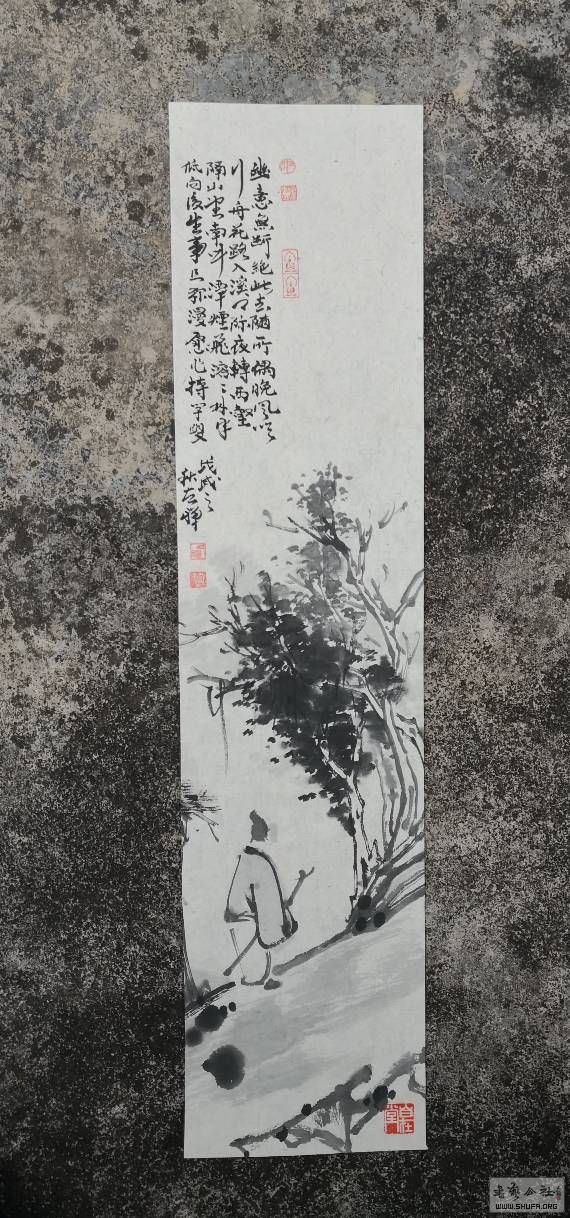 幽意無断絕此去随所偶晚風吹
行舟花路入溪口际夜轉西壑
隔山望南斗潭煙飛溶〻林月
低向後生事且弥漫愿为持竿叟
戊戌之
秋
自在堂
書藝公社
WWW.SHUFA.ORG